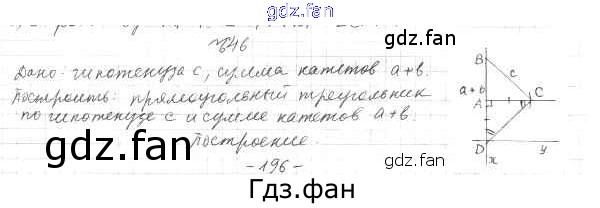 gdz.fan
№46
gdz.fan
Дано: гипотенуза c, сумма катетов a+b.
Построить: прямоугольный треугольник
по гипотенузе c и сумме катетов a+b.
Построение.
gdz.fan
gdz.fan
-196-
Гдз.фан
B
c
a+b
A
C
D
x
y